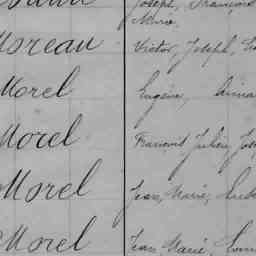 Joseph, François
Marie.
Moreau Victor, Joseph,
Morel Eugène,
Morel François Julien
Morel Jean, Marie,
Morel Jean Marie,